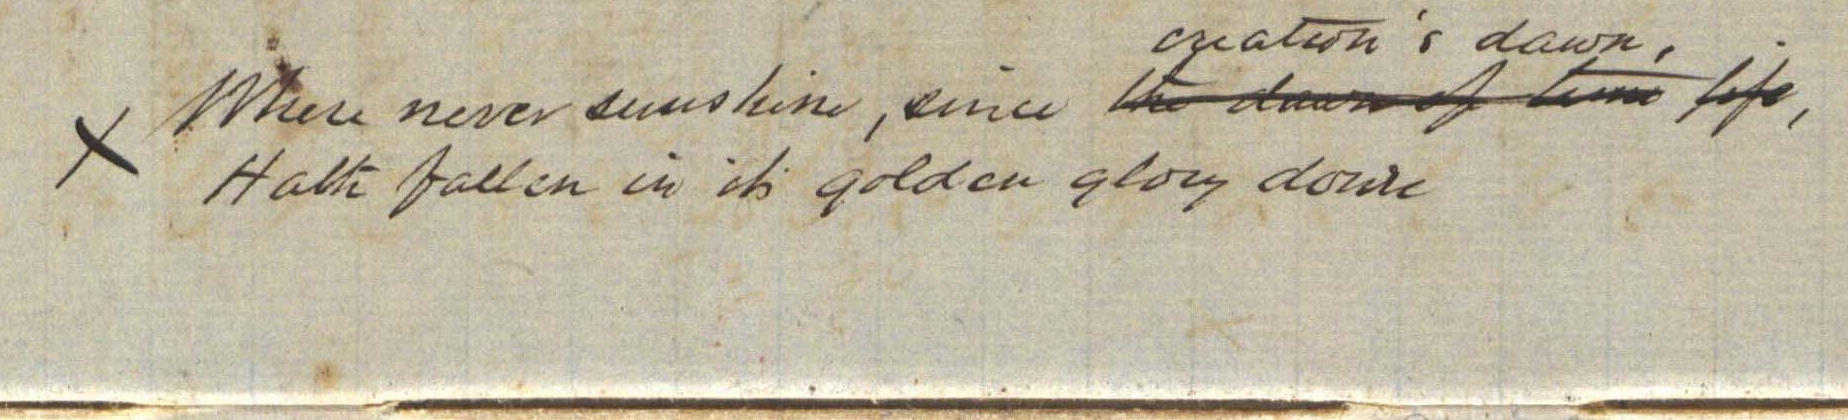 creation's dawn,
X Where never sunshine, since the dawn of time life,
Hath fallen in its golden glory down